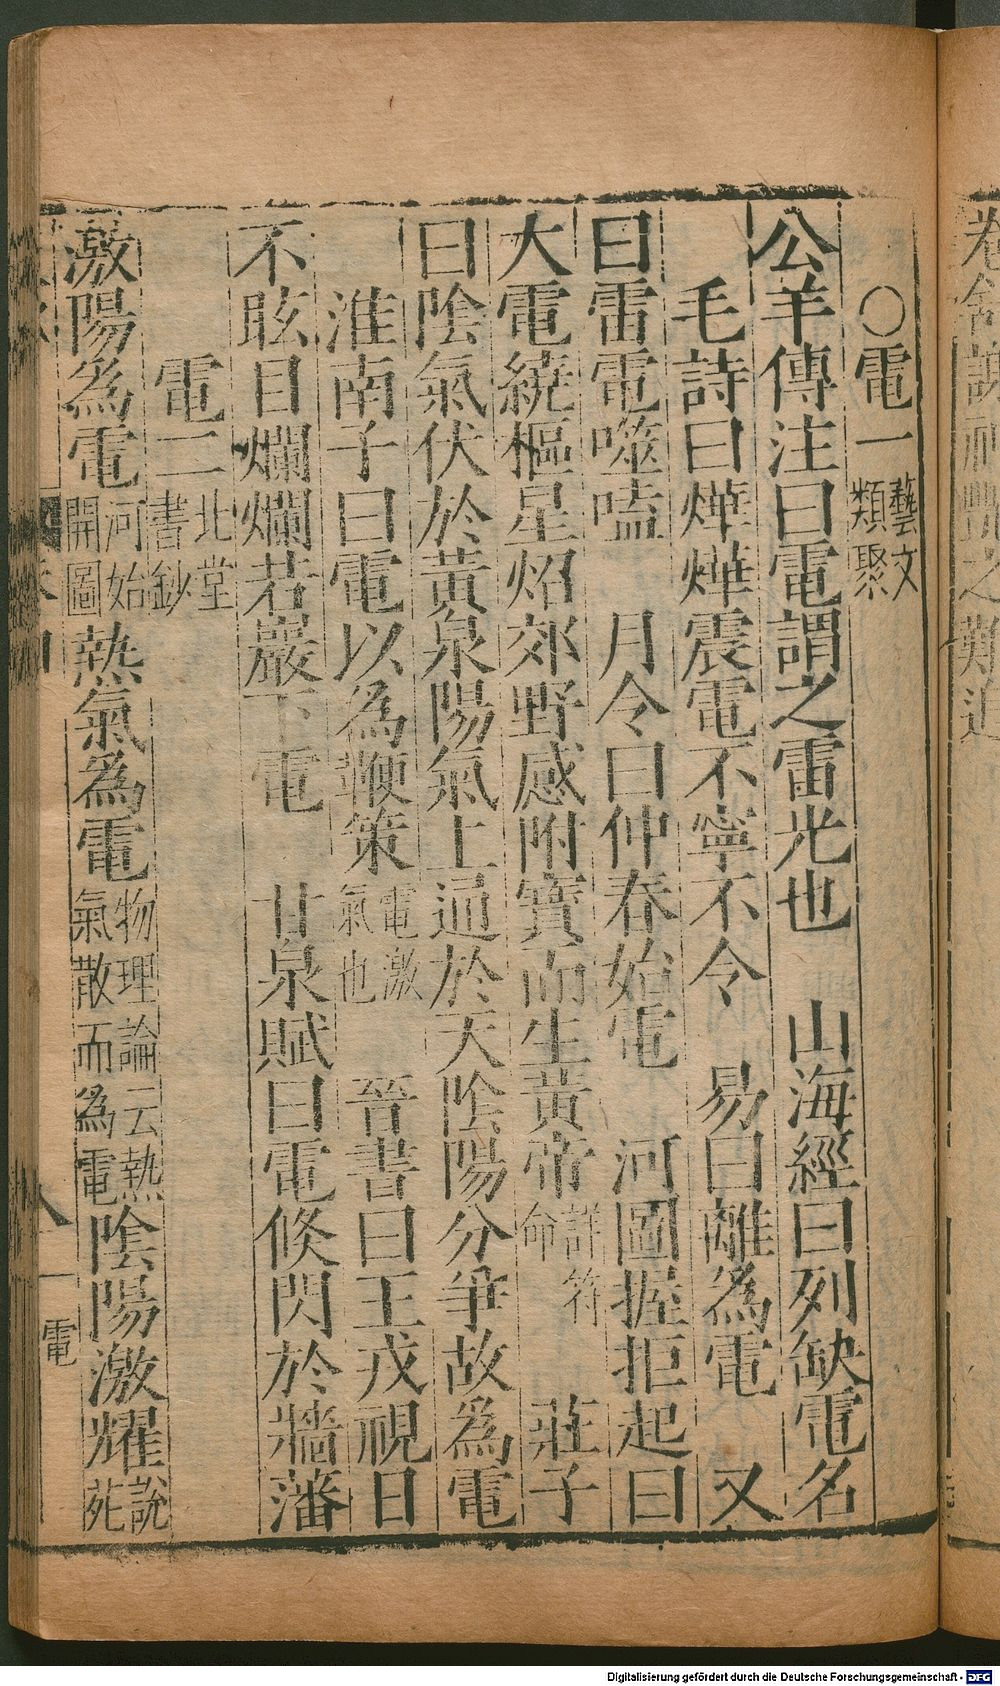 ○電一藝文類聚
公羊傳注曰電謂之雷光也　山海經曰列缺電名
毛詩曰燁燁震電不寧不令　易曰離為電　又
曰雷電噬嗑　月令曰仲春始電　河圖握拒起曰
大電繞樞星炤郊野感附寶而生黃帝詳符命　莊子
曰陰氣伏於黃泉陽氣上通於天陰陽分爭故為電
淮南子曰電以為鞭策電激氣也　晉書曰王戎視日
不眩目爛爛若巖下電　甘泉賦曰電倏閃於牆藩
電二北堂書鈔
激陽為電河始開圖熱氣為電物理論云熱氣散而為電陰陽激耀說苑
八
電
卷舍
之難追
Digitalisierung gefördert durch die Deutsche Forschungsgemeinschaft - DFG